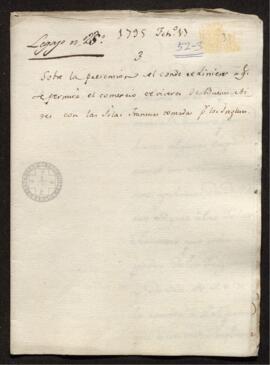 Legajo n.º 23º. 1795 Feb.º 13
52-3
3
Sobre la pretencion del conde de Liniers a q.e
se permita el comercio de viveres de Buenos Ai-
res con las Islas Francesas tomadas p.r los Ingleses.